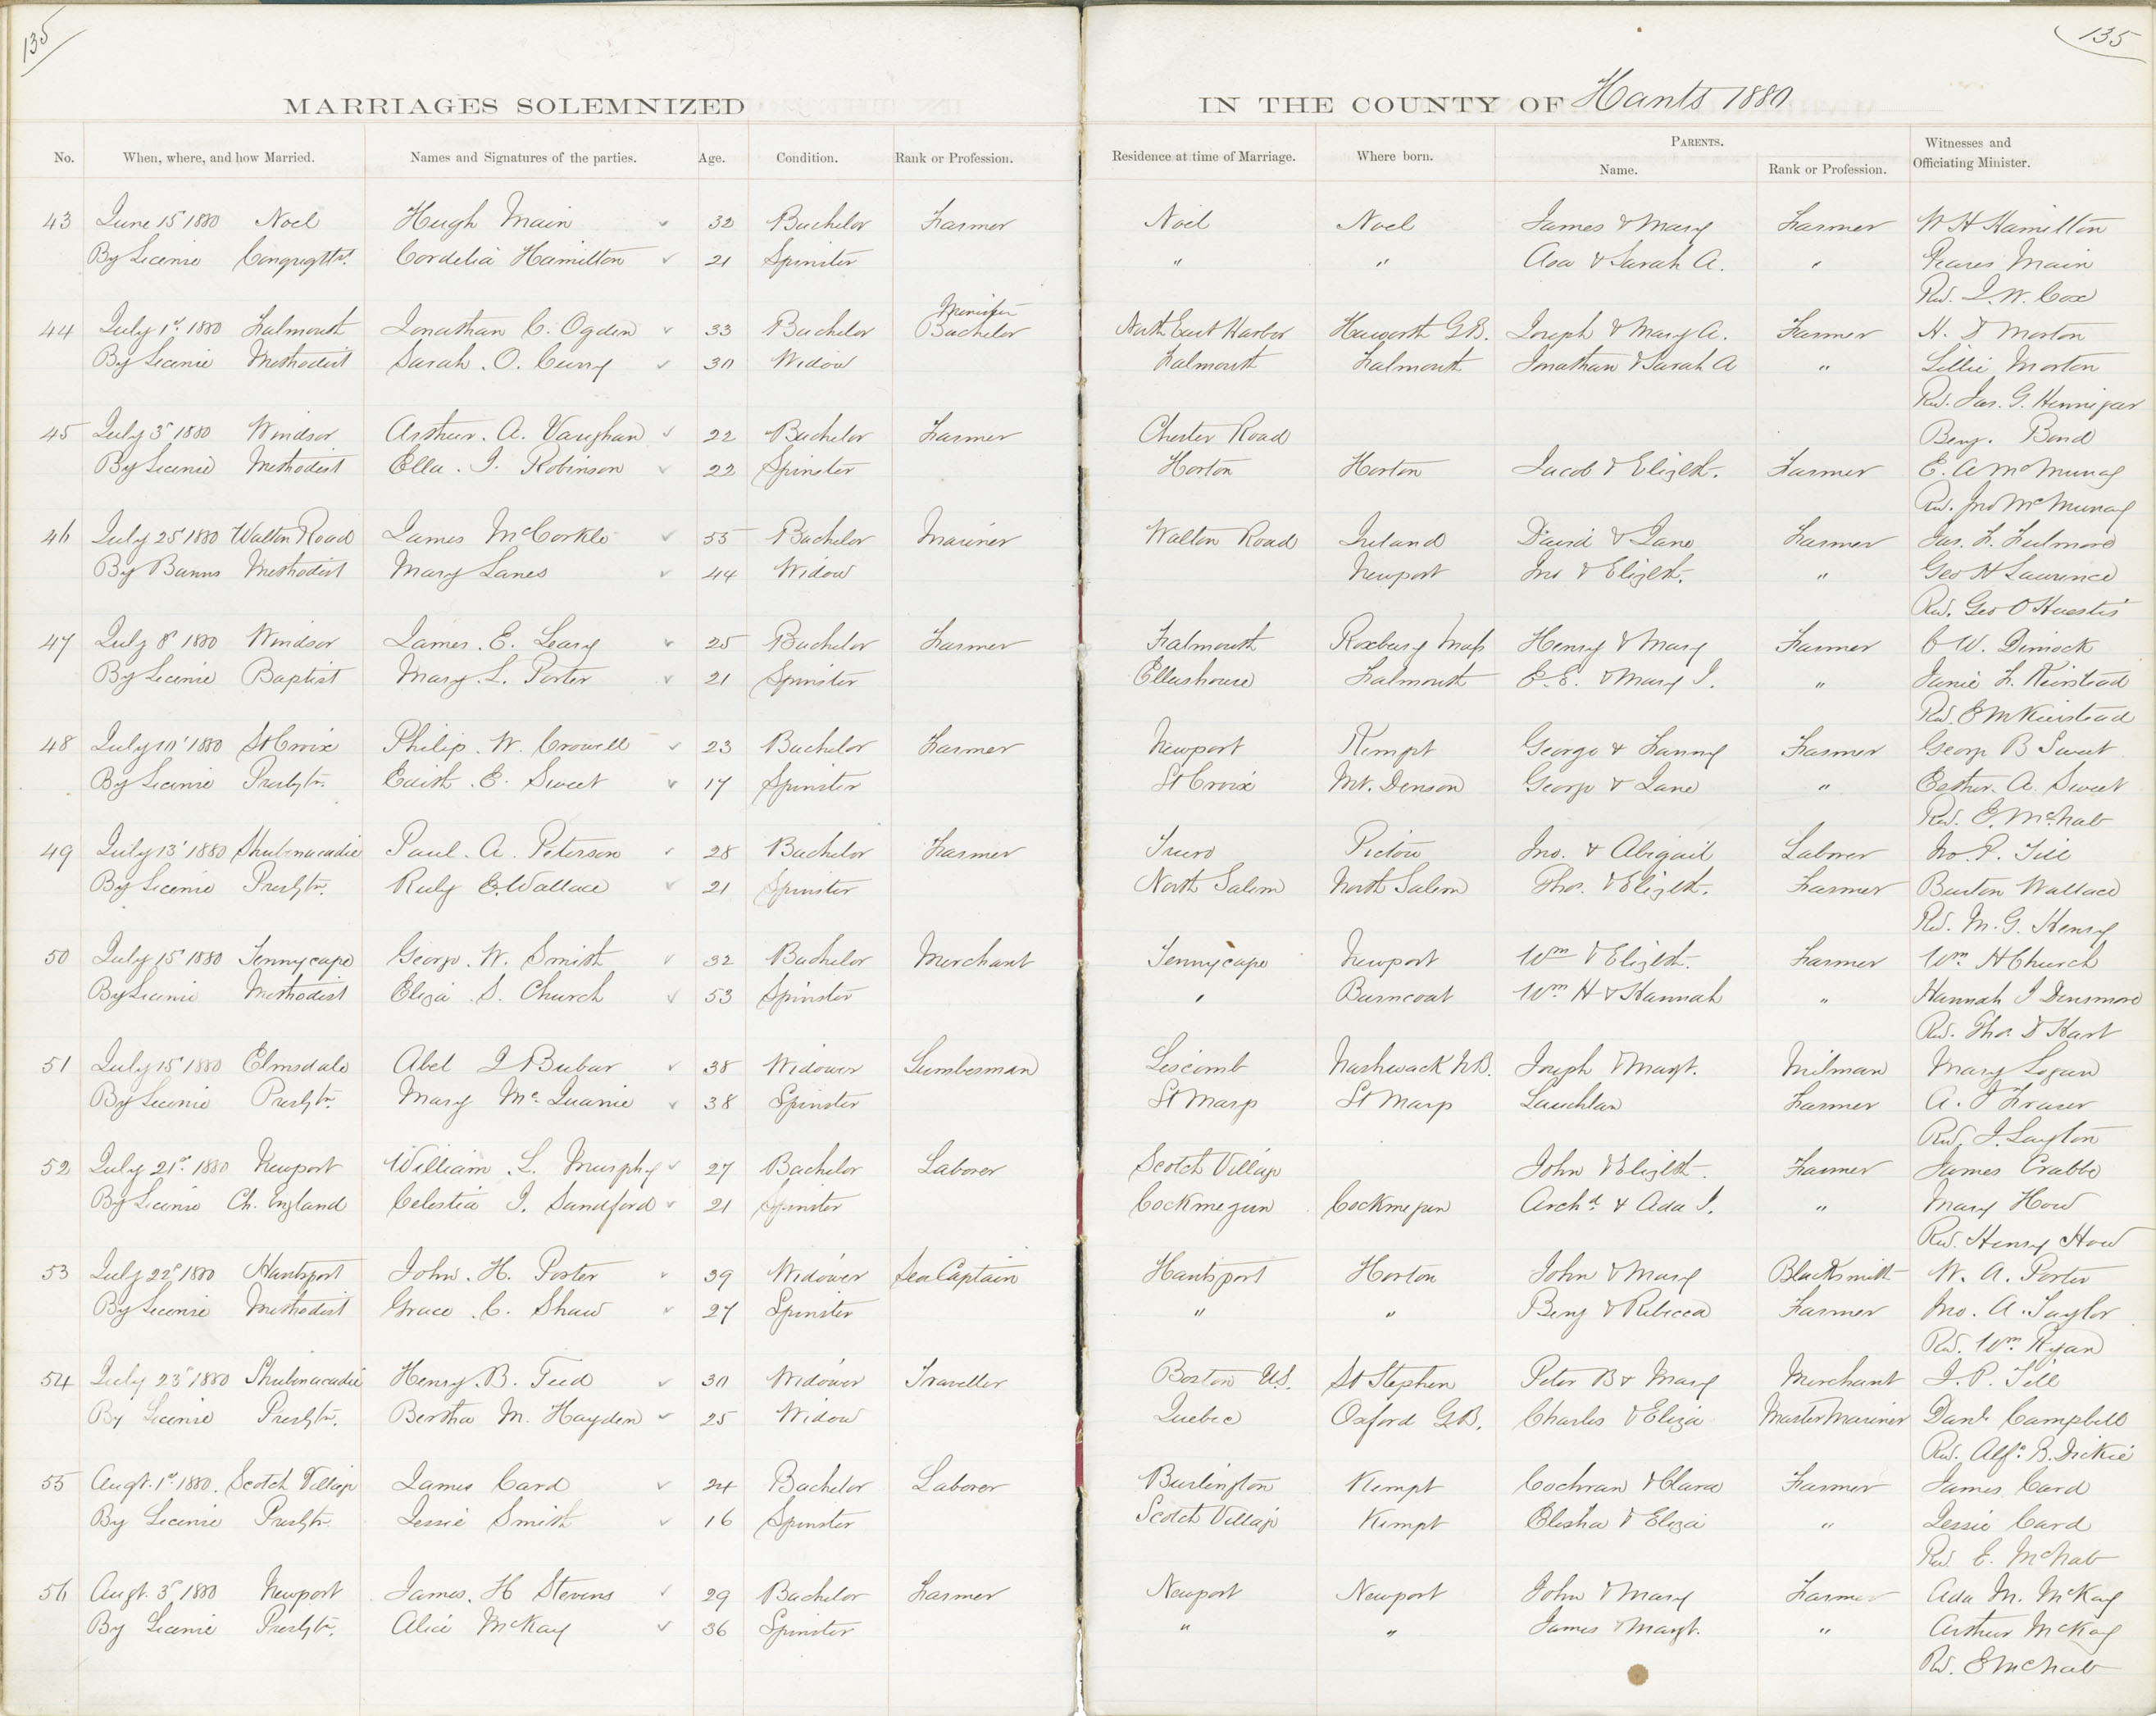 135
135
MARRIAGES SOLEMNIZED IN THE COUNTY OF Hants 1880
No. When, where, and how Married. Names and Signatures of the parties. Age. Condition. Rank or Profession. Residence at time of Marriage. Where born. PARENTS. Name. Rank or Profession. Witnesses and Officiating Minister.
43 June 15 1880 Noel Hugh Main 32 Bachelor Farmer Noel Noel James & Mary Farmer W H Hamilton
By License Congregtl. Cordelia Hamilton 21 Spinster " " Asa & Sarah A. " Main
Rev. J. W. Cox
Minister
44 July 1st 1880 Falmouth Jonathan C. Ogden 33 Bachelor Bachelor North East Harbor Haworth G.B. Joseph & Mary A. Farmer H. D Morton
By License Methodist Sarah . O. Curry 30 Widow Falmouth Falmouth Jonathan & Sarah A " Lillie Morton
Rev. Jas. G. Hennigar
45 July 3rd 1880 Windsor Arthur. A. Vaughan 22 Bachelor Farmer Chester Road Benj. Bond
By License Methodist Ella . J. Robinson 22 Spinster Horton Horton Jacob & Elizth. Farmer E. A McMurray
Rev. Jno McMurray
46 July 25 1880 Walton Road James McCorkle 55 Bachelor Mariner Walton Road Ireland David & Jane Farmer Jas. F.
By Banns Methodist Mary Lanes 44 Widow Newport Jno & Elizth. " Geo H Lawrence
Rev. Geo O Huestis
47 July 8 1880 Windsor James. E. Leary 25 Bachelor Farmer Falmouth Roxbury Mass Henry & Mary Farmer C W. Dimock
By License Baptist Mary. L. Porter 21 Spinster Ellershouse Falmouth E. E. & Mary J. " Janie F. Keirstead
Rev. E M Keirstead
48 July 10 1880 St Croix Philip. W. Crowell 23 Bachelor Farmer Newport Kempt George & Fanny Farmer George B Sweet
By License Presbytn. Edith . E. Sweet 17 Spinster St Croix Mt. Denson George & Jane " Esther. A. Sweet
Rev. E. McNab
49 July 13 1880 Shubenacadie Paul. A. Peterson 28 Bachelor Farmer Truro Pictou Jno. & Abigail Laborer Jno. P. Till
By License Presbytn. Ruly E. Wallace 21 Spinster North Salem North Salem Thos. & Elizth. Farmer Burton Wallace
Rev. M. G. Henry
50 July 15 1880 Tennycape George. W. Smith 32 Bachelor Merchant Tennycape Newport Wm & Elizth. Farmer Wm H Church
By License Methodist Eliza . S. Church 53 Spinster " Burncoat Wm H & Hannah " Hannah J Densmore
Rev. Thos. D Hart
51 July 15 1880 Elmsdale Abel J Bubar 38 Widower Lumberman Liscomb Nashwack N.B. Joseph & Margt. Milman Mary Logan
By License Presbytn. Mary McQuanie 38 Spinster St Marys St Marys Lauchlan Farmer A. J Fraser
Rev. J. Layton
52 July 21st 1880 Newport William . L. Murphy 27 Bachelor Laborer Scotch Village John & Elizth. Farmer James Crabbe
By License Ch. England Celestia J. Sandford 21 Spinster Cockmegun Cockmegun Archd. & Ada J. " Mary How
Rev. Henry How
53 July 22nd 1880 Hantsport John. H. Porter 39 Widower Sea Captain Hantsport Horton John & Mary Blacksmith W. A. Porter
By License Methodist Grace . C. Shaw 27 Spinster " " Benj & Rebecca Farmer Jno. A. Taylor
Rev. Wm. Ryan
54 July 23rd 1880 Shubenacadie Henry. B. Teed 30 Widower Traveller Boston U.S. St Stephen Peter B & Mary Merchant J. P. Till
By License Presbytn. Bertha M. Hayden 25 Widow Quebec Oxford G.B. Charles & Eliza Master Mariner Danl. Campbell
Rev. Alfd. B. Dickie
55 Augt. 1st 1880. Scotch Village James Card 24 Bachelor Laborer Burlington Kempt Cochran & Clara Farmer James Card
By License Presbytn. Jessie Smith 16 Spinster Scotch Village Kempt Elisha & Eliza " Jessie Card
Rev E. McNab
56 Augt. 3rd 1880 Newport James. H Stevens 29 Bachelor Farmer Newport Newport John & Mary Farmer Ada M. McKay
By License Presbytn. Alice McKay 36 Spinster " " James & Margt. " Arthur McKay
Rev. E McNab